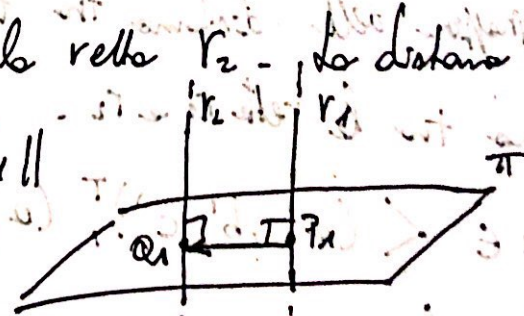 la retta r₂ - La distanza
r₂ r₁
||
π
Q₁ P₁